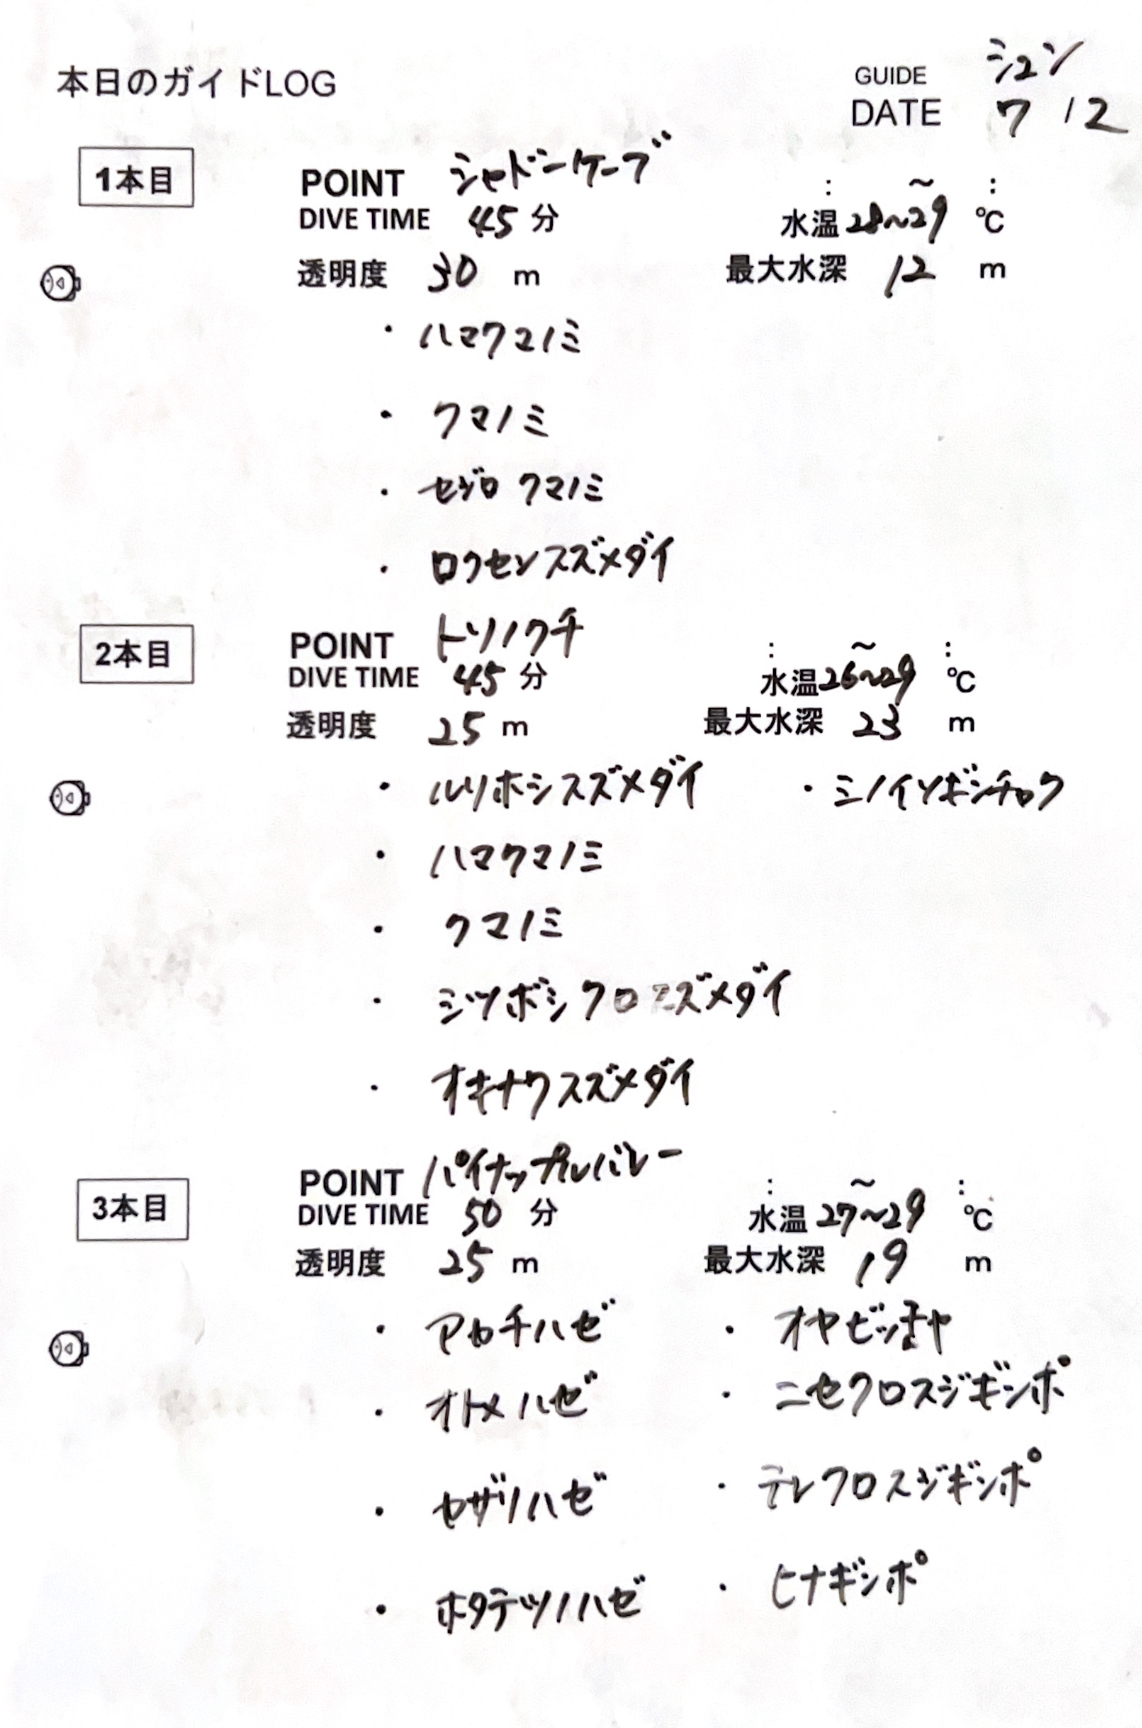 本日のガイドLOG
GUIDE シュン
DATE 7 12
1本目
POINT シャドーケーブ
: ~ :
DIVE TIME 45 分
水温 28~29 ℃
透明度 30 m
最大水深 12 m
・ハマクマノミ
・クマノミ
・セジロクマノミ
・ロクセンスズメダイ
2本目
POINT トリノクチ
: ~ :
DIVE TIME 45 分
水温 26~29 ℃
透明度 25 m
最大水深 23 m
・ルリホシスズメダイ ・ミノイソギンチャク
・ハマクマノミ
・クマノミ
・ミツボシクロスズメダイ
・オキナワスズメダイ
3本目
POINT パイナップルバレー
: ~ :
DIVE TIME 50 分
水温 27~29 ℃
透明度 25 m
最大水深 19 m
・アカチハゼ ・オヤビッチャ
・オトメハゼ ・ニセクロスジギンポ
・セザリハゼ ・テンクロスジギンポ
・ホタテツノハゼ ・ヒナギンポ